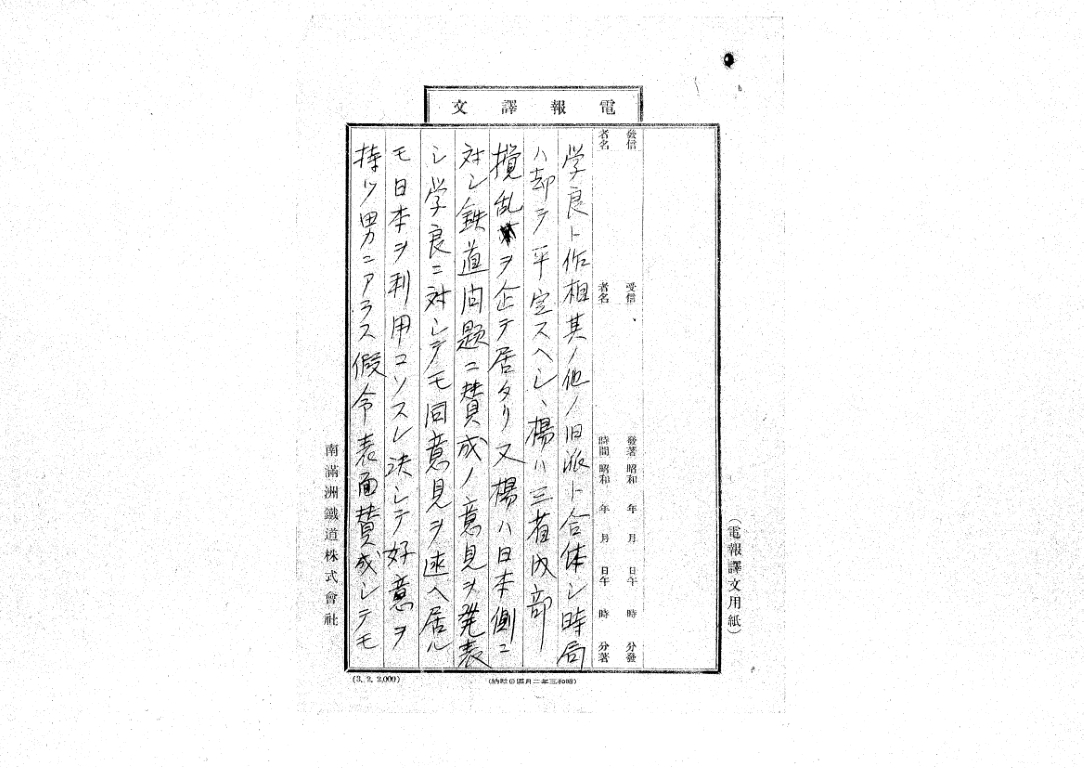 電報譯文
(電報譯文用紙)
發信者名
受信者名
發著時間 昭和 年 月 日午 時 分發
昭和 年 月 日午 時 分著
学良ト作相其ノ他ノ旧派ト合体シ時局
ハ却テ平定スヘシ、楊ハ三者内部ノ
攪乱ヲ企テ居タリ又楊ハ日本側ニ
対シ鉄道问題ニ賛成ノ意見ヲ発表
シ学良ニ対シテモ同意見ヲ述ヘ居ル
モ日本ヲ利用コソスレ決シテ好意ヲ
持ツ男ニアラス假令表面賛成シテモ
南滿洲鐵道株式會社
(3. 2. 2,000)